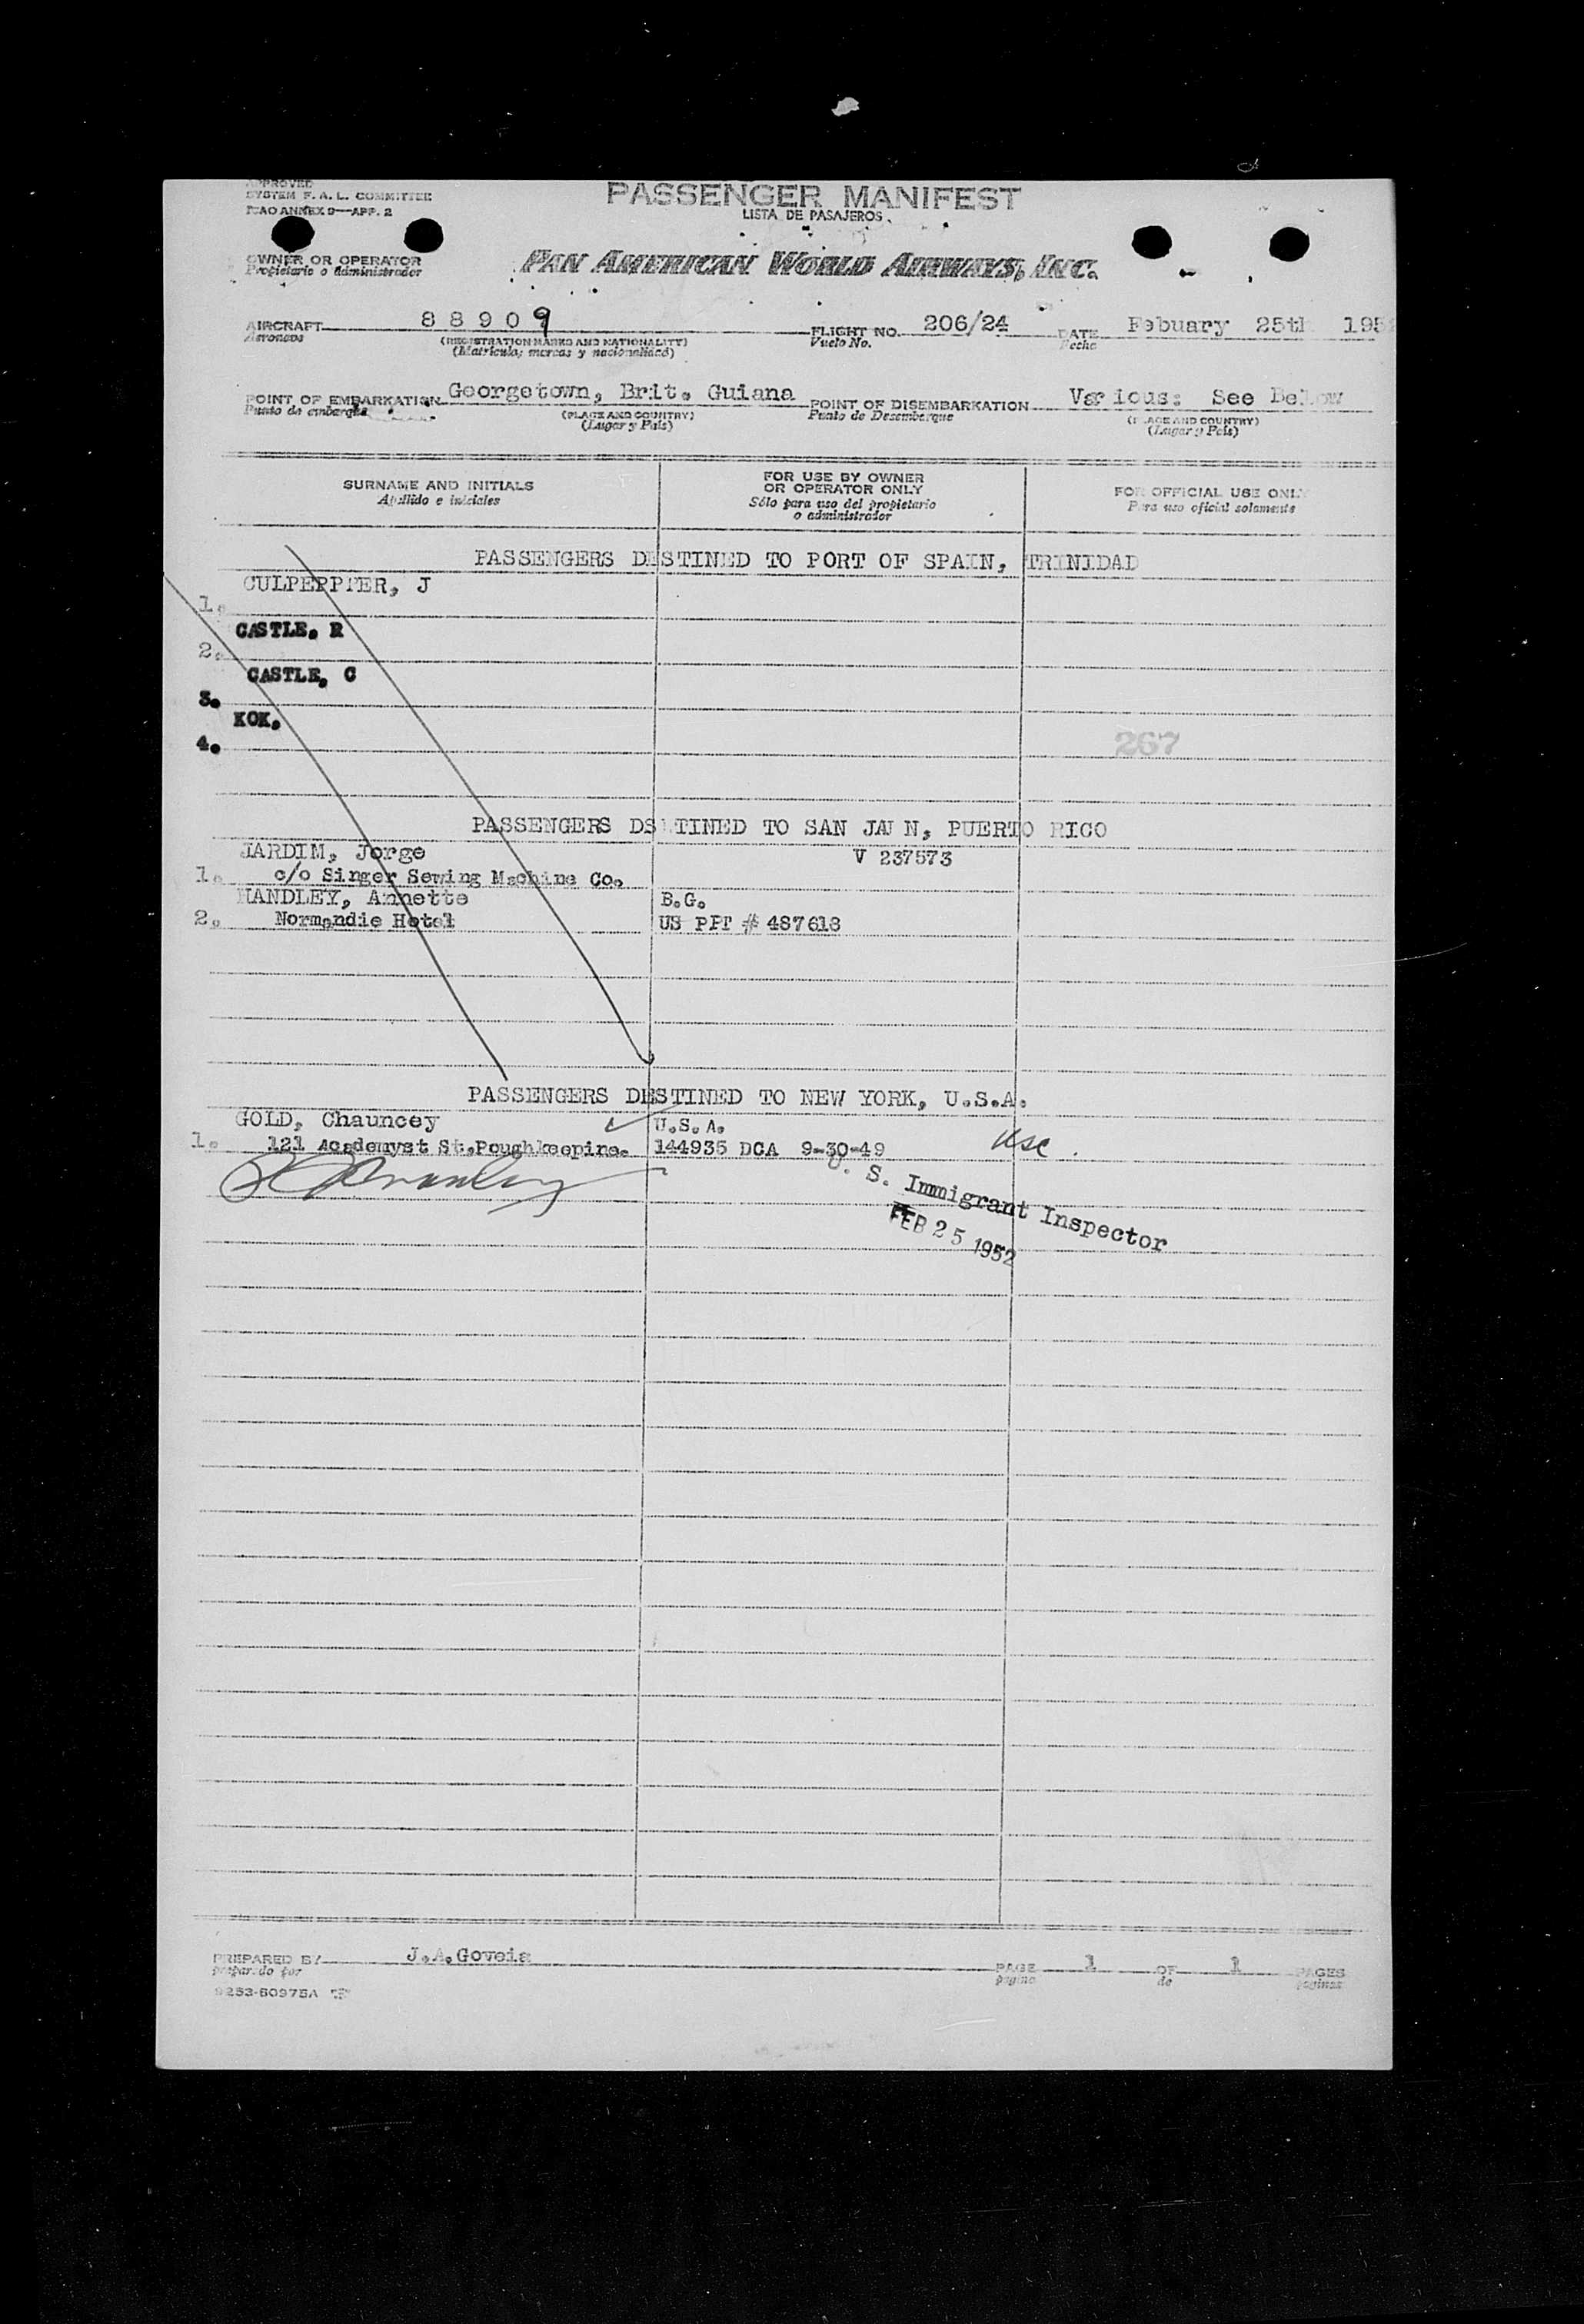 APPROVED
SYSTEM F. A. L. COMMITTEE
ICAO ANNEX 9—APP. 2
PASSENGER MANIFEST
LISTA DE PASAJEROS
OWNER OR OPERATOR
Propietario o Administrador
PAN AMERICAN WORLD AIRWAYS, INC.
AIRCRAFT 88909 FLIGHT NO. 206/24 DATE Febuary 25th 195
Aeronave (REGISTRATION MARKS AND NATIONALITY) Vuelo No. Fecha
(Matrícula, marcas y nacionalidad)
POINT OF EMBARKATION Georgetown, Brit. Guiana POINT OF DISEMBARKATION Various: See Below
Punto de embarque (PLACE AND COUNTRY) Punto de Desembarque (PLACE AND COUNTRY)
(Lugar y País) (Lugar y País)
SURNAME AND INITIALS FOR USE BY OWNER OR OPERATOR ONLY FOR OFFICIAL USE ONLY
Apellido e iniciales Sólo para uso del propietario o administrador Para uso oficial solamente
PASSENGERS DESTINED TO PORT OF SPAIN, TRINIDAD
CULPEPPTER, J
1.
CASTLE. R
2.
CASTLE, C
3.
KOK.
4.
267
PASSENGERS DSTINED TO SAN JAUN, PUERTO RICO
JARDIM, Jorge V 237573
1. c/o Singer Sewing Machine Co.
HANDLEY, Annette B.G.
2. Normandie Hotel US PPT # 487618
PASSENGERS DESTINED TO NEW YORK, U.S.A.
GOLD, Chauncey U.S.A.
1. 121 Academyst St.Poughkeepine. 144935 DCA 9-30-49 USC
U. S. Immigrant Inspector
FEB 25 1952
PREPARED BY J.A.Goveia PAGE 1 OF 1 PAGES
preparado por página de páginas
9253-60975A